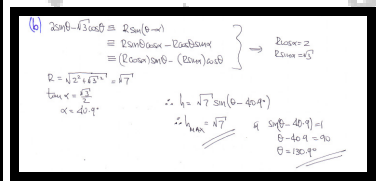 (b) 2sinθ-√3cosθ ≡ R sin(θ-α)
≡ R sinθ cosα - R cosθ sinα
≡ (R cosα) sinθ - (R sinα) cosθ
→ R cosα = 2
R sinα = √3
R = √(2² + √3²) = √7
tan α = √3/2
α = 40.9°
∴ h = √7 sin(θ - 40.9°)
∴ h MAX = √7 if sin(θ - 40.9) = 1
θ - 40.9 = 90
θ = 130.9°